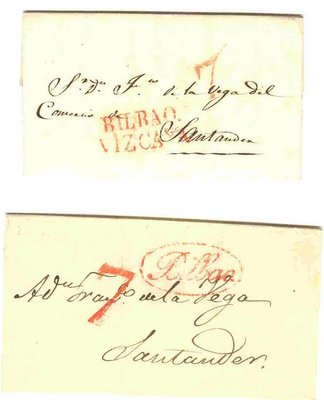 7
Sr. Dn. Fco. de la Vega del
Comercio de
BILBAO.
VIZCA
Santander
Bilbao
7
A Dn. Franco. de la Vega
Santander.